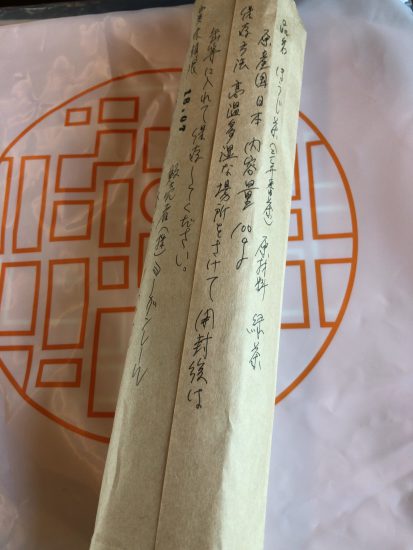 品名 ほうじ茶(三年番茶) 原材料 緑茶
原産国日本 内容量 100g
保存方法 高温多湿な場所をさけて 開封後は
缶等に入れて保存してください。
賞味期限 18.07
販売者(株)